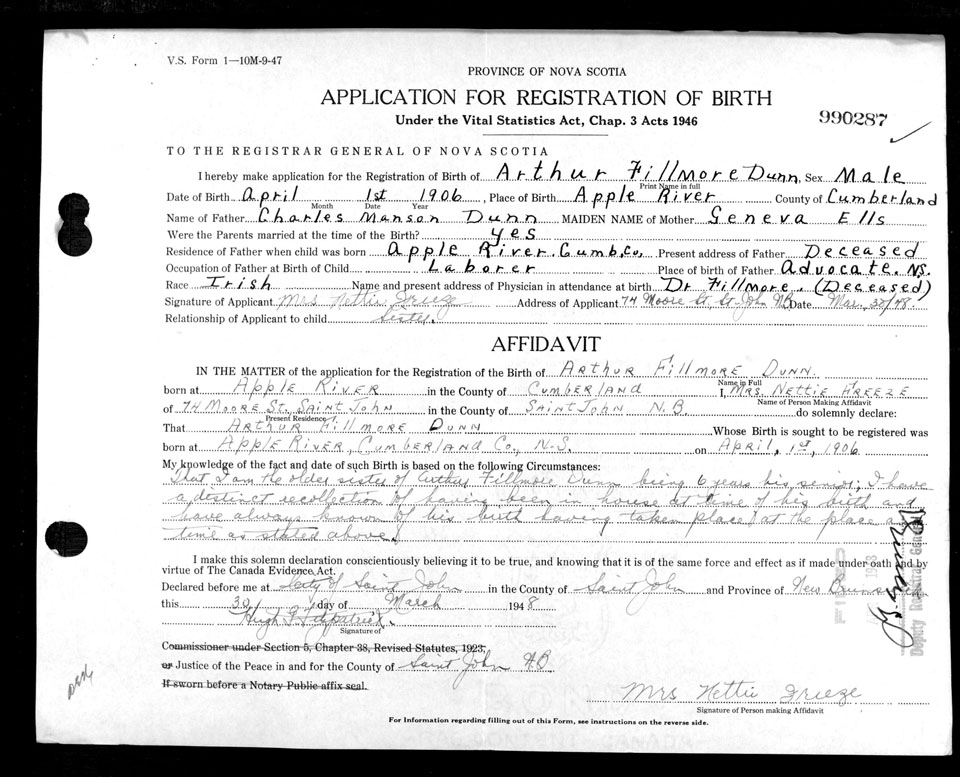 V.S. Form 1—10M-9-47
PROVINCE OF NOVA SCOTIA
APPLICATION FOR REGISTRATION OF BIRTH
Under the Vital Statistics Act, Chap. 3 Acts 1946
990287
TO THE REGISTRAR GENERAL OF NOVA SCOTIA
I hereby make application for the Registration of Birth of Arthur Fillmore Dunn, Sex Male
Print Name in full
Date of Birth April 1st 1906, Place of Birth Apple River County of Cumberland
Month Date Year
Name of Father Charles Manson Dunn MAIDEN NAME of Mother Geneva Ells
Were the Parents married at the time of the Birth? Yes
Residence of Father when child was born Apple River. Cumb. Co, Present address of Father Deceased
Occupation of Father at Birth of Child Laborer Place of birth of Father Advocate. N.S.
Race Irish Name and present address of Physician in attendance at birth Dr Fillmore. (Deceased)
Signature of Applicant Mrs Nettie Frieze Address of Applicant 74 Moore St, St. John N.B Date Mar. /48
Relationship of Applicant to child Sister.
AFFIDAVIT
IN THE MATTER of the application for the Registration of Birth of Arthur Fillmore Dunn.
Name in Full
born at Apple River in the County of Cumberland I, Mrs. Nettie Freeze
Name of Person Making Affidavit
of 74 Moore St., Saint John in the County of Saint John N.B. do solemnly declare:
Present Residence
That Arthur Fillmore Dunn Whose Birth is sought to be registered was
born at Apple River, Cumberland Co., N.S. on April, 1st, 1906
My knowledge of the fact and date of such Birth is based on the following Circumstances:
That I am the older sister of Arthur Fillmore Dunn being 6 years his senior; I have
a distinct recollection of having been in house at time of his birth and
have always known of his birth having taken place at the place and
time as stated above.
I make this solemn declaration conscientiously believing it to be true, and knowing that it is of the same force and effect as if made under oath and by
virtue of The Canada Evidence Act.
Declared before me at City of Saint John in the County of Saint John and Province of New Brunswick
this 30 day of March 1948
Hugh Fitzpatrick.
Signature of
Commissioner under Section 5, Chapter 38, Revised Statutes, 1923,
or Justice of the Peace in and for the County of Saint John N B
If sworn before a Notary Public affix seal.
Mrs Nettie Frieze
Signature of Person making Affidavit
For Information regarding filling out of this Form, see instructions on the reverse side.
Deputy Registrar General